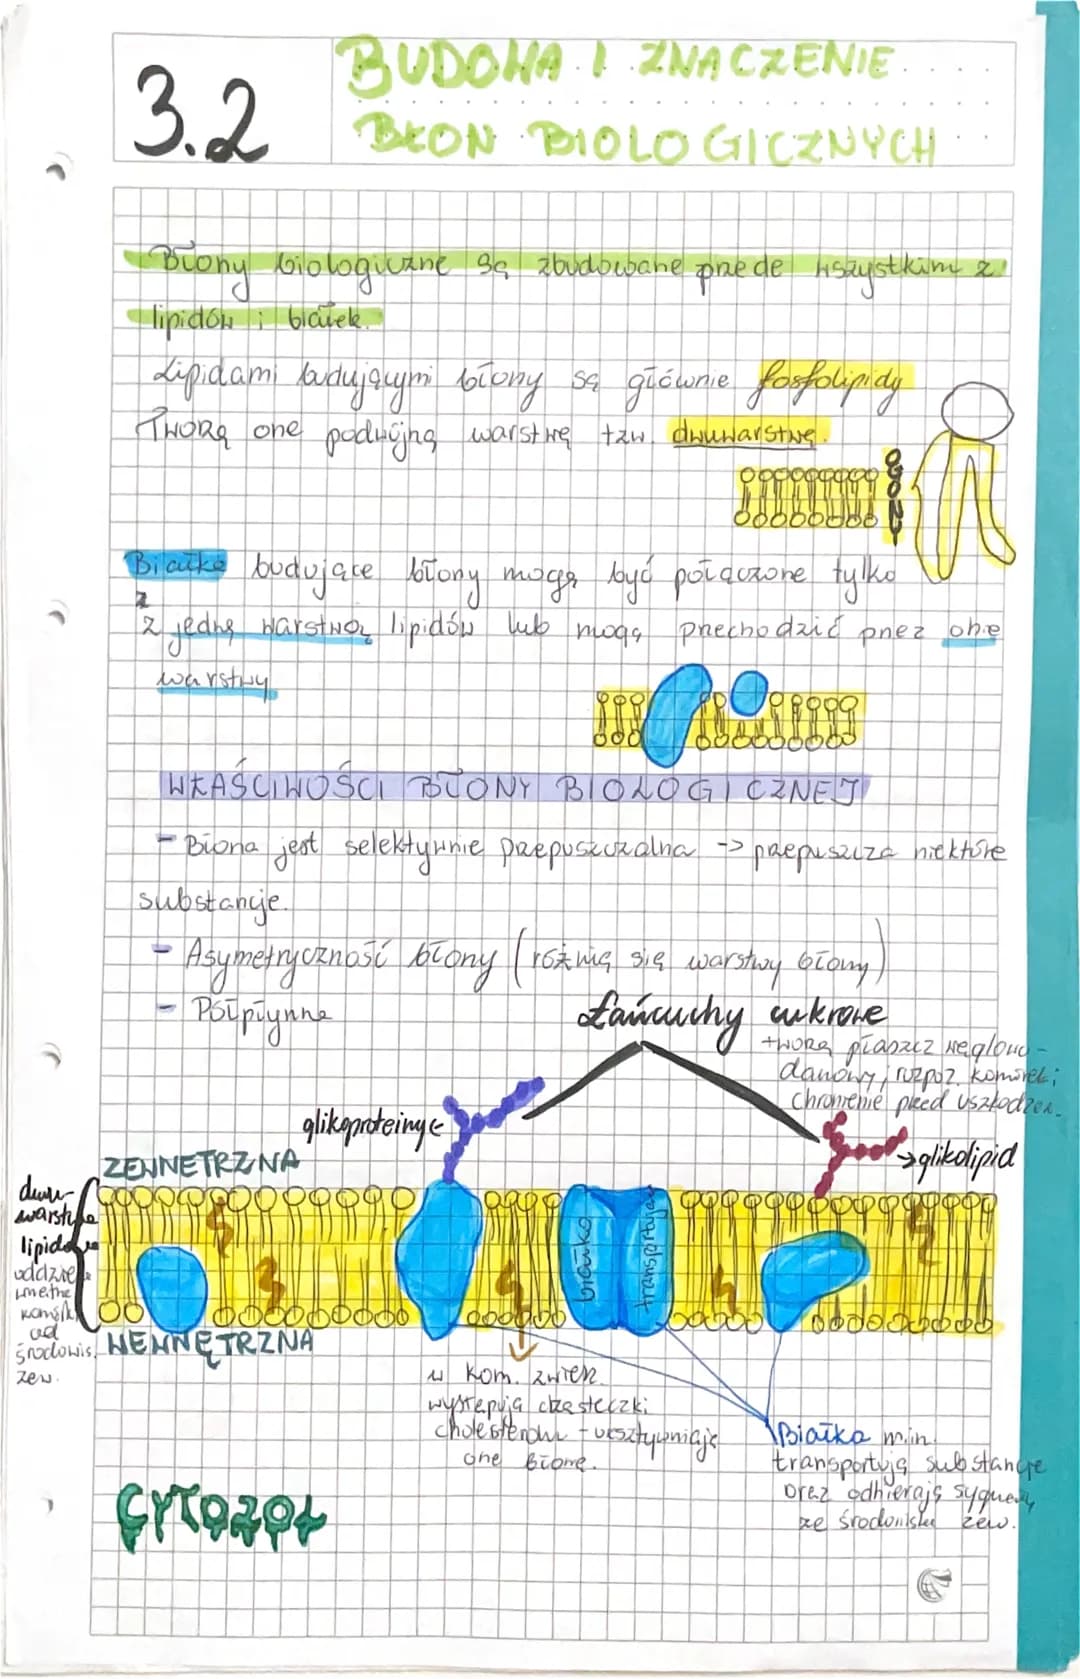 3.2
BUDOWA I ZNACZENIE
BŁON BIOLOGICZNYCH
Błony biologiczne są zbudowane przede wszystkim z
lipidów i białek.
Lipidami budującymi błony są głównie fosfolipidy
Tworzą one podwójną warstwę tzw. dwuwarstwę.
OGONY
Białka budujące błony mogą być połączone tylko
z
z jedną warstwą lipidów lub mogą przechodzić przez obie
warstwy
WŁAŚCIWOŚCI BŁONY BIOLOGICZNEJ
- Błona jest selektywnie przepuszczalna -> przepuszcza niektóre
substancje.
- Asymetryczność błony (różnią się warstwy błony)
- Półpłynne
Łańcuchy cukrowe
tworzą płaszcz węglowo-
danowy; rozpoz. komórek;
chronienie przed uszkodzen.
glikoproteiny
glikolipid
ZEWNĘTRZNA
dwu-
warstwa
lipidowa
oddziela
wnętrze
komórki
od
środowis.
zew.
białko
transportujące
WEWNĘTRZNA
w kom. zwierz.
występują cząsteczki
cholesterolu - usztywniają
one błonę.
Białka m.in.
transportują substancje
oraz odbierają sygnały
ze środowiska zew.
CYTOZOL